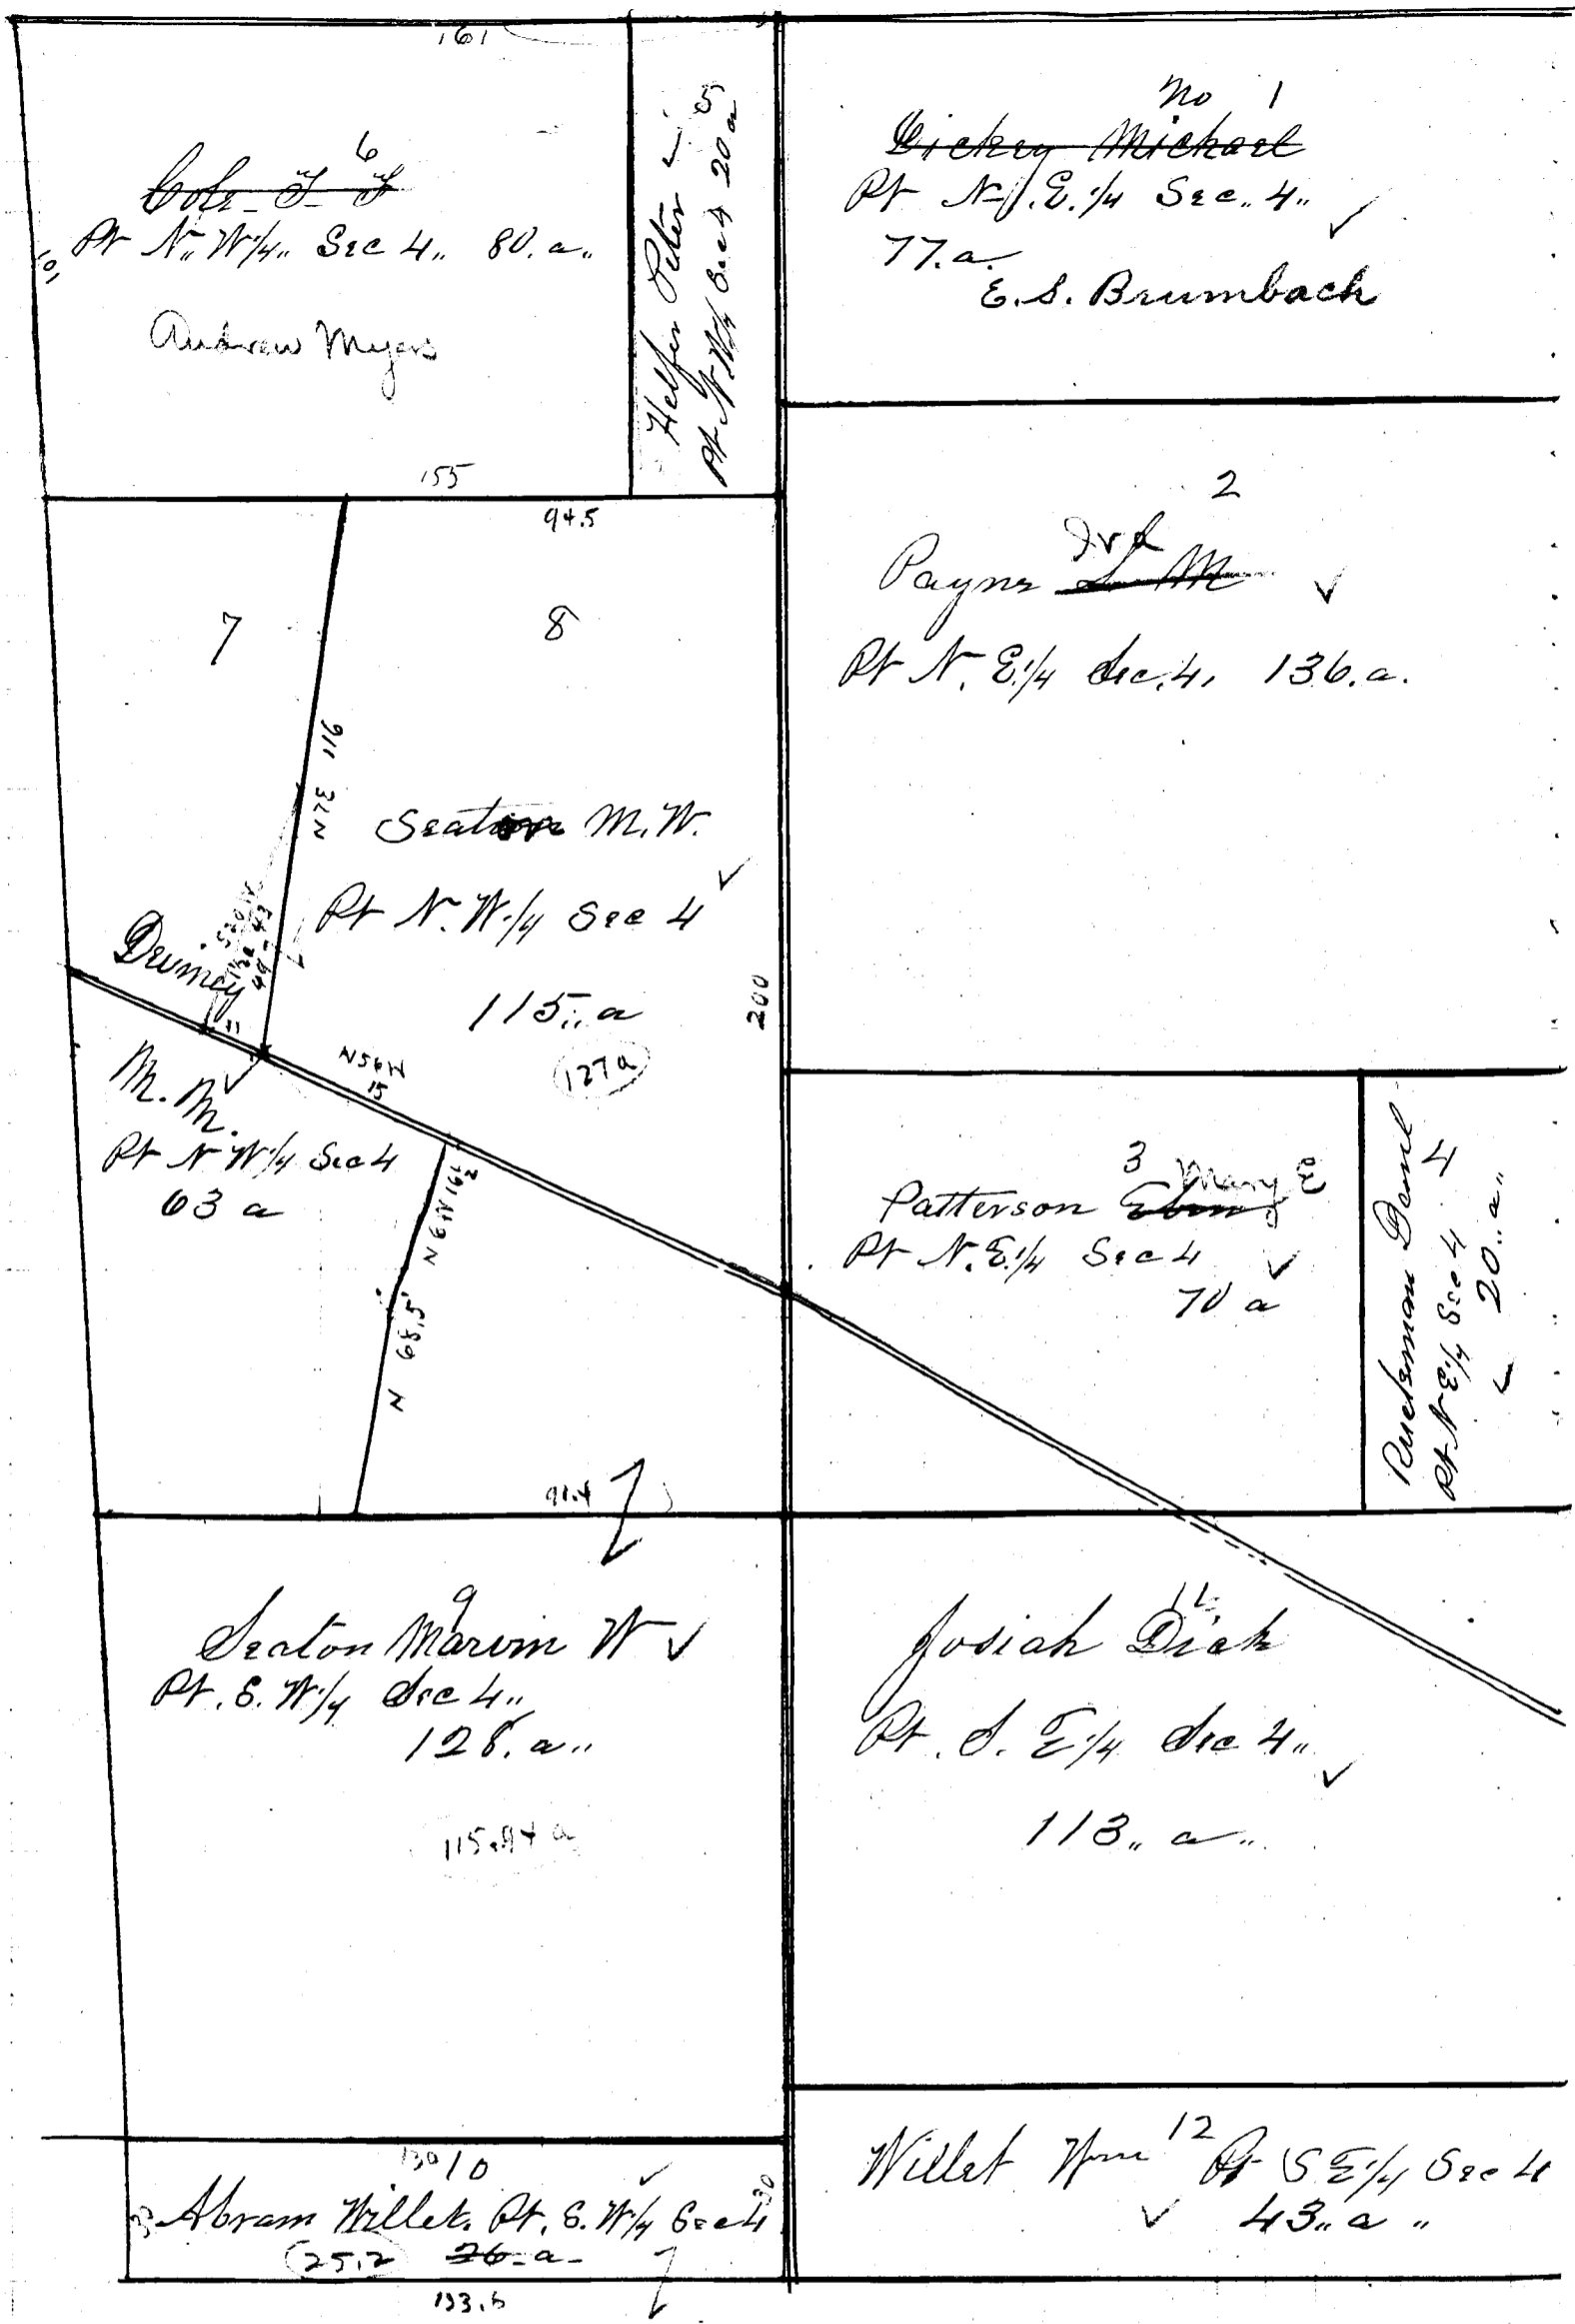 161
6
Cole
Pt N. W 1/4 Sec 4 80. a.
Andrew Myers
155
Helfer Peter 5
Pt N. W 1/4 Sec 4 20 a
No 1
Michael
Pt N. E. 1/4 Sec. 4
77. a.
E. S. Brumbach
2
Ird
Payne L M
Pt N. E. 1/4 Sec. 4, 136. a.
94.5
7
8
N 7 E 116
Seaton M. W.
Pt N. W. 1/4 Sec 4
115 a
127 a
200
49 - 43
11
M. M.
Pt N W 1/4 Sec 4
63 a
N 56 W
15
N 6 W 16 1/2
N 68.5
91.4
3
Mary E
Patterson
Pt N. E. 1/4 Sec 4
70 a
4
Pt N E 1/4 Sec 4
20 a
9
Seaton W
Pt. S. W 1/4 Sec 4
128. a
115.94 a
11
Josiah Dick
Pt. S. E 1/4 Sec 4
113 a
130
10
30
Abram Willet. Pt. S. W 1/4 Sec 4
25.2 26 a
133.6
12
Willet Wm Pt S E 1/4 Sec 4
43 a